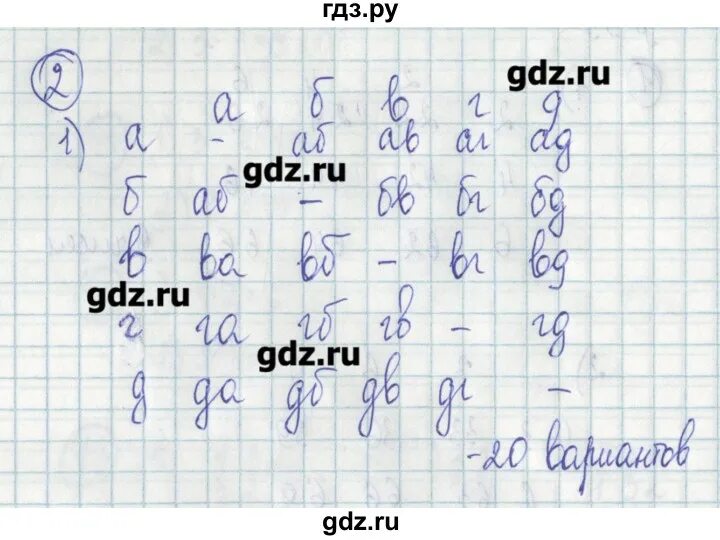 гдз.ру
2
gdz.ru
а б в г д
1) а - аб ав аг ад
gdz.ru
б аб - бв бг бд
в ва вб - вг вд
gdz.ru
г га гб гв - гд
gdz.ru
д да дб дв дг -
-20 вариантов
gdz.ru